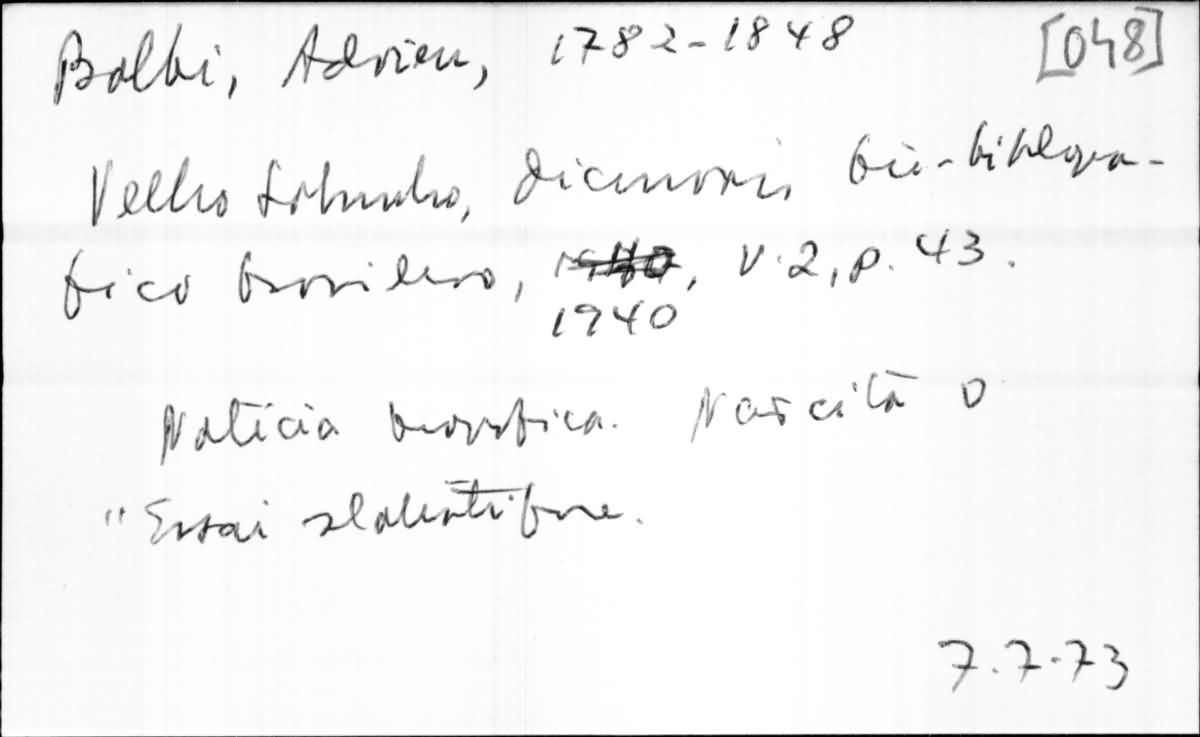 Balbi, Adrien, 1782-1848 [048]
Velho Sobrinho, Dicionário bio-bibliográ-
fico brasileiro, 1940, v.2, p. 43.
1940
Notícia biográfica. Não cita o
"Essai statistique.
7.7.73